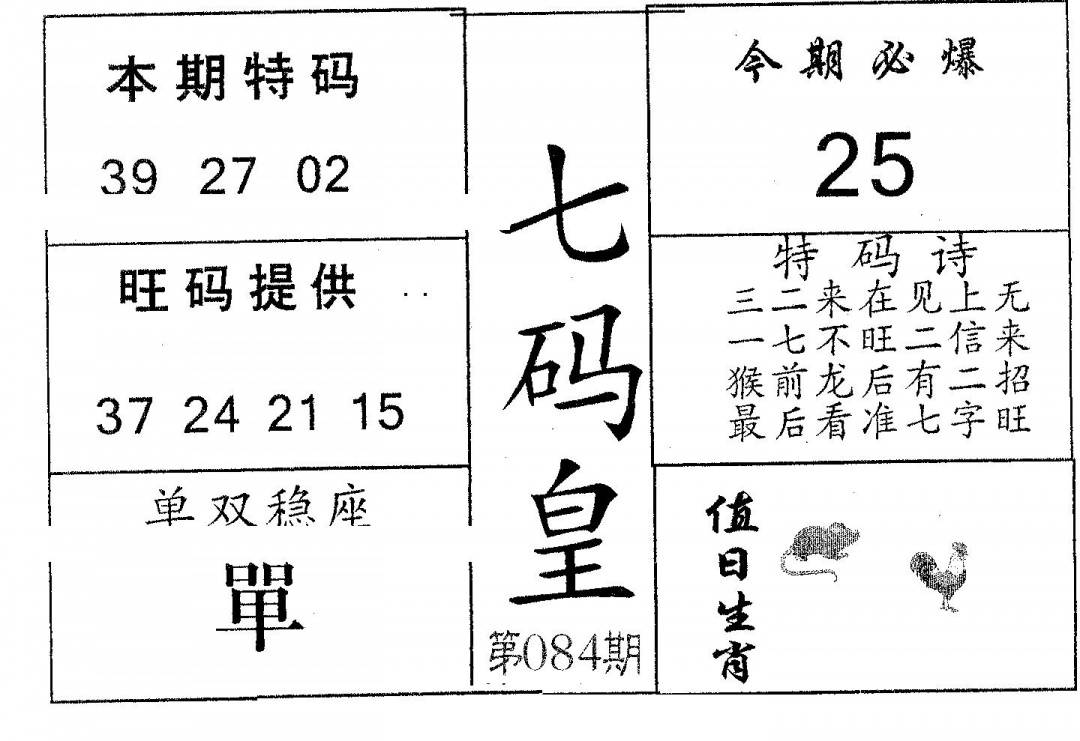 本期特码
39 27 02
旺码提供
37 24 21 15
单双稳座
單
七码皇
第084期
今期必爆
25
特码诗
三二来在见上无
一七不旺二信来
猴前龙后有二招
最后看准七字旺
值日生肖